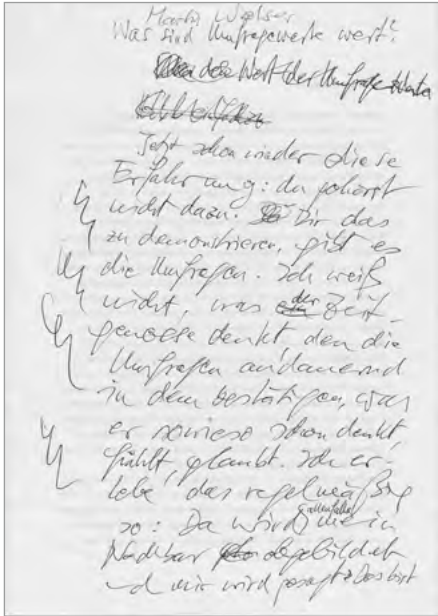 Martin Walser
Was sind Umfragewerte wert?
Über den Wert der Umfrage-Werte
Jetzt schon wieder diese
Erfahrung: du gehörst
nicht dazu. Dir das
zu demonstrieren, gibt es
die Umfragen. Ich weiß
nicht, was der Zeit-
genosse denkt, den die
Umfragen andauernd
in dem bestätigen, was
er sowieso schon denkt,
fühlt, glaubt. Ich er-
lebe das regelmäßig
so: Da wird mein
Nachbar abgebildet
und mir wird gesagt: Das bist